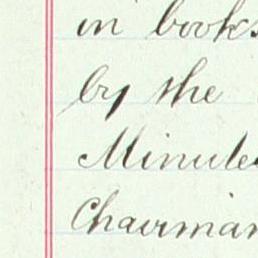 in books
by the
Minute
Chairman